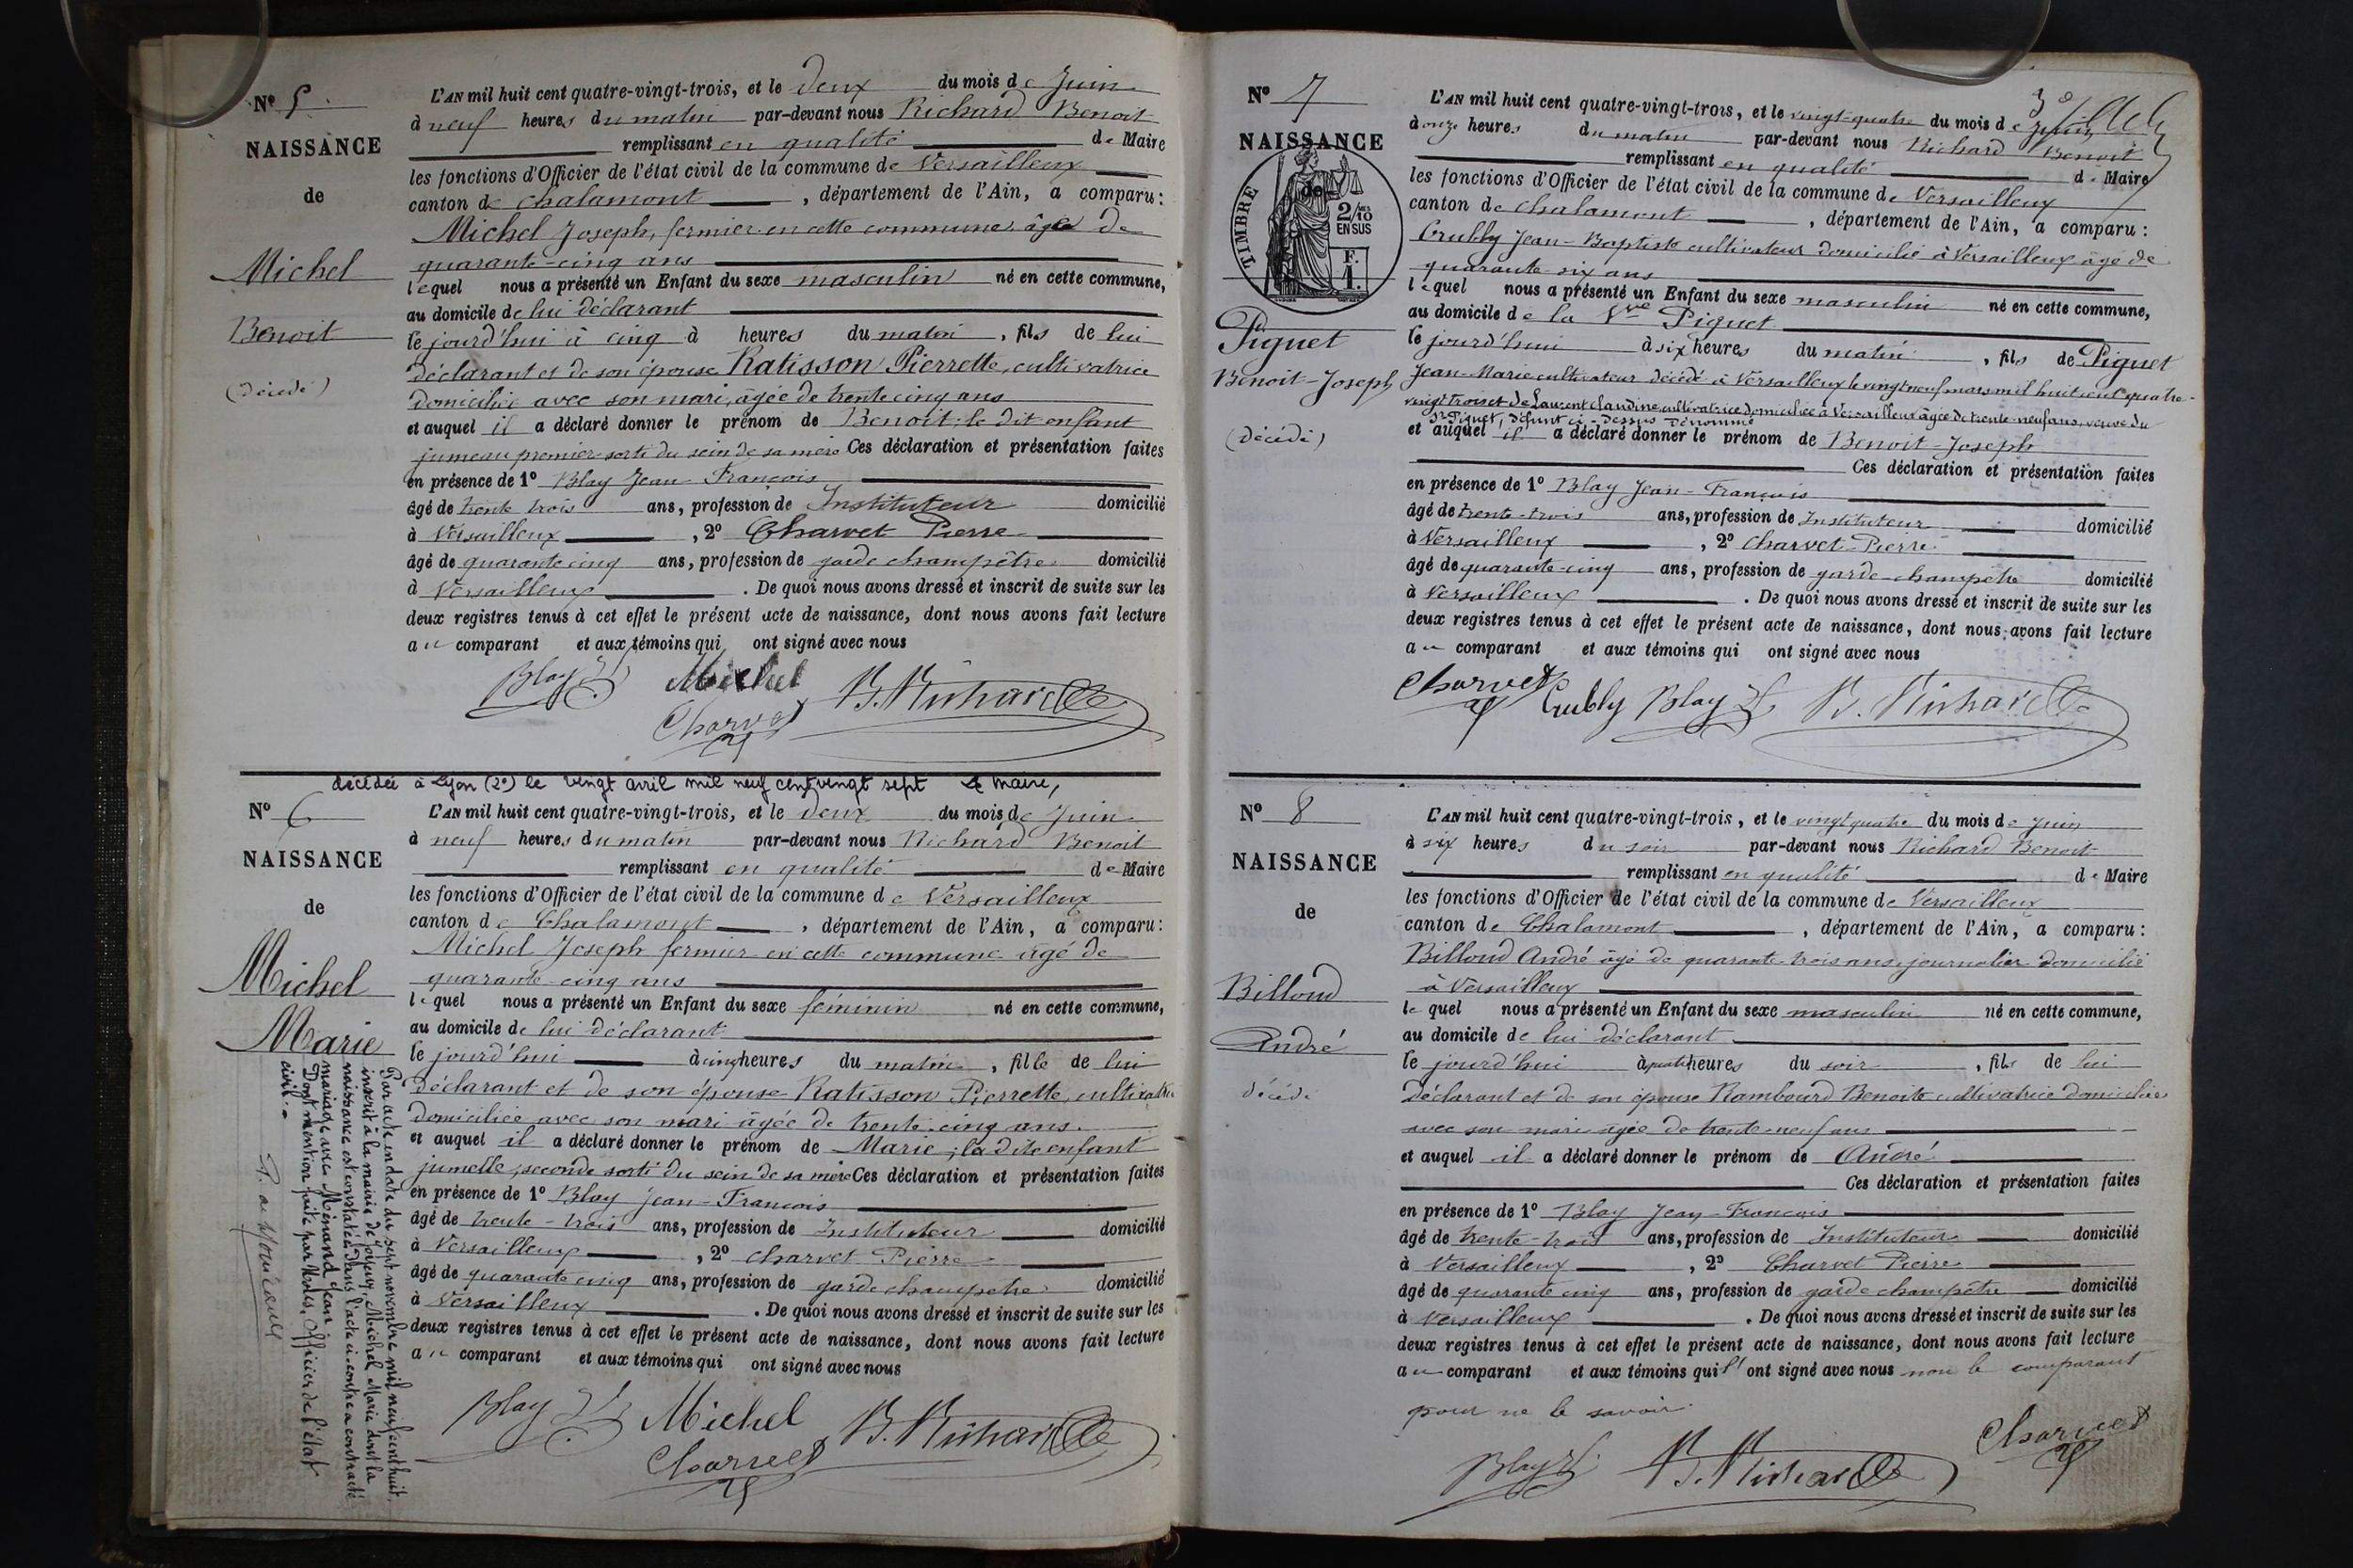 N° 5
NAISSANCE
de
Michel
Benoit
(décédé)
L'AN mil huit cent quatre-vingt-trois, et le deux du mois de Juin
à neuf heures du matin par-devant nous Richard Benoit
remplissant en qualité de Maire
les fonctions d'Officier de l'état civil de la commune de Versailleux
canton de Chalamont , département de l'Ain, a comparu:
Michel Joseph, fermier en cette commune âgé de
quarante-cinq ans
lequel nous a présenté un Enfant du sexe masculin né en cette commune,
au domicile de lui déclarant
le jourd'hui à cinq à heures du matin , fils de lui
déclarant et de son épouse Ratisson Pierrette, cultivatrice
domiciliée avec son mari, âgée de trente cinq ans
et auquel il a déclaré donner le prénom de Benoit; le dit enfant
jumeau premier sorti du sein de sa mère Ces déclaration et présentation faites
en présence de 1° Blay Jean François
âgé de trente trois ans, profession de Instituteur domicilié
à Versailleux , 2° Charvet Pierre
âgé de quarante cinq ans, profession de garde champêtre domicilié
à Versailleux . De quoi nous avons dressé et inscrit de suite sur les
deux registres tenus à cet effet le présent acte de naissance, dont nous avons fait lecture
au comparant et aux témoins qui ont signé avec nous
Blay Michel B. Richard
Charvet
décédée à Lyon (2e) le vingt avril mil neuf cent vingt sept Le Maire,
N° 6
NAISSANCE
de
Michel
Marie
Par acte en date du sept novembre mil neuf cent huit,
inscrit à la mairie de Joyeux, Michel Marie dont la
naissance est constatée dans l'acte ci-contre a contracté
mariage avec Ménand Jean
Dont mention faite par Nous, Officier de l'état
civil.
L'AN mil huit cent quatre-vingt-trois, et le deux du mois de Juin
à neuf heures du matin par-devant nous Richard Benoit
remplissant en qualité de Maire
les fonctions d'Officier de l'état civil de la commune de Versailleux
canton de Chalamont , département de l'Ain, a comparu:
Michel Joseph fermier en cette commune âgé de
quarante-cinq ans
lequel nous a présenté un Enfant du sexe féminin né en cette commune,
au domicile de lui déclarant
le jourd'hui à cinq heures du matin , fille de lui
déclarant et de son épouse Ratisson Pierrette, cultivatrice
domiciliée avec son mari âgée de trente-cinq ans.
et auquel il a déclaré donner le prénom de Marie; la dite enfant
jumelle, seconde sorti du sein de sa mère Ces déclaration et présentation faites
en présence de 1° Blay Jean-François
âgé de trente-trois ans, profession de Instituteur domicilié
à Versailleux , 2° Charvet Pierre
âgé de quarante cinq ans, profession de garde champetre domicilié
à Versailleux . De quoi nous avons dressé et inscrit de suite sur les
deux registres tenus à cet effet le présent acte de naissance, dont nous avons fait lecture
au comparant et aux témoins qui ont signé avec nous
Blay Michel B. Richard
Charvet
N° 7
NAISSANCE
de
TIMBRE
2/10
EN SUS
F.
1.
Piguet
Benoit-Joseph
(décédé)
L'AN mil huit cent quatre-vingt-trois, et le vingt-quatre du mois de juin
à onze heures du matin par-devant nous Richard Benoit
remplissant en qualité de Maire
les fonctions d'Officier de l'état civil de la commune de Versailleux
canton de Chalamont , département de l'Ain, a comparu:
Crubly Jean-Baptiste cultivateur domicilié à Versailleux âgé de
quarante-six ans
lequel nous a présenté un Enfant du sexe masculin né en cette commune,
au domicile de la Vve Piguet
le jourd'hui à six heures du matin , fils de Piguet
Jean-Marie cultivateur décédé à Versailleux le vingt neuf mars mil huit cent quatre-
vingt trois et de Laurent Claudine cultivatrice domiciliée à Versailleux âgée de trente-neuf ans, veuve du
Sr Piguet, défunt ci-dessus dénommé
et auquel il a déclaré donner le prénom de Benoit-Joseph
Ces déclaration et présentation faites
en présence de 1° Blay Jean-François
âgé de trente-trois ans, profession de Instituteur domicilié
à Versailleux , 2° Charvet Pierre
âgé de quarante-cinq ans, profession de garde-champetre domicilié
à Versailleux . De quoi nous avons dressé et inscrit de suite sur les
deux registres tenus à cet effet le présent acte de naissance, dont nous avons fait lecture
au comparant et aux témoins qui ont signé avec nous
Charvet Crubly Blay B. Richard
N° 8
NAISSANCE
de
Billoud
André
décédé
L'AN mil huit cent quatre-vingt-trois, et le vingt quatre du mois de juin
à six heures du soir par-devant nous Richard Benoit
remplissant en qualité de Maire
les fonctions d'Officier de l'état civil de la commune de Versailleux
canton de Chalamont , département de l'Ain, a comparu:
Billoud André âgé de quarante-trois ans, journalier domicilié
à Versailleux
lequel nous a présenté un Enfant du sexe masculin né en cette commune,
au domicile de lui déclarant
le jourd'hui à quatre heures du soir , fils de lui
déclarant et de son épouse Rambourd Benoite cultivatrice domiciliée
avec son mari âgée de trente-neuf ans
et auquel il a déclaré donner le prénom de André
Ces déclaration et présentation faites
en présence de 1° Blay Jean-François
âgé de trente-trois ans, profession de Instituteur domicilié
à Versailleux , 2° Charvet Pierre
âgé de quarante cinq ans, profession de garde champêtre domicilié
à Versailleux . De quoi nous avons dressé et inscrit de suite sur les
deux registres tenus à cet effet le présent acte de naissance, dont nous avons fait lecture
au comparant et aux témoins qui l' ont signé avec nous non le comparant
pour ne le savoir.
Blay B. Richard Charvet